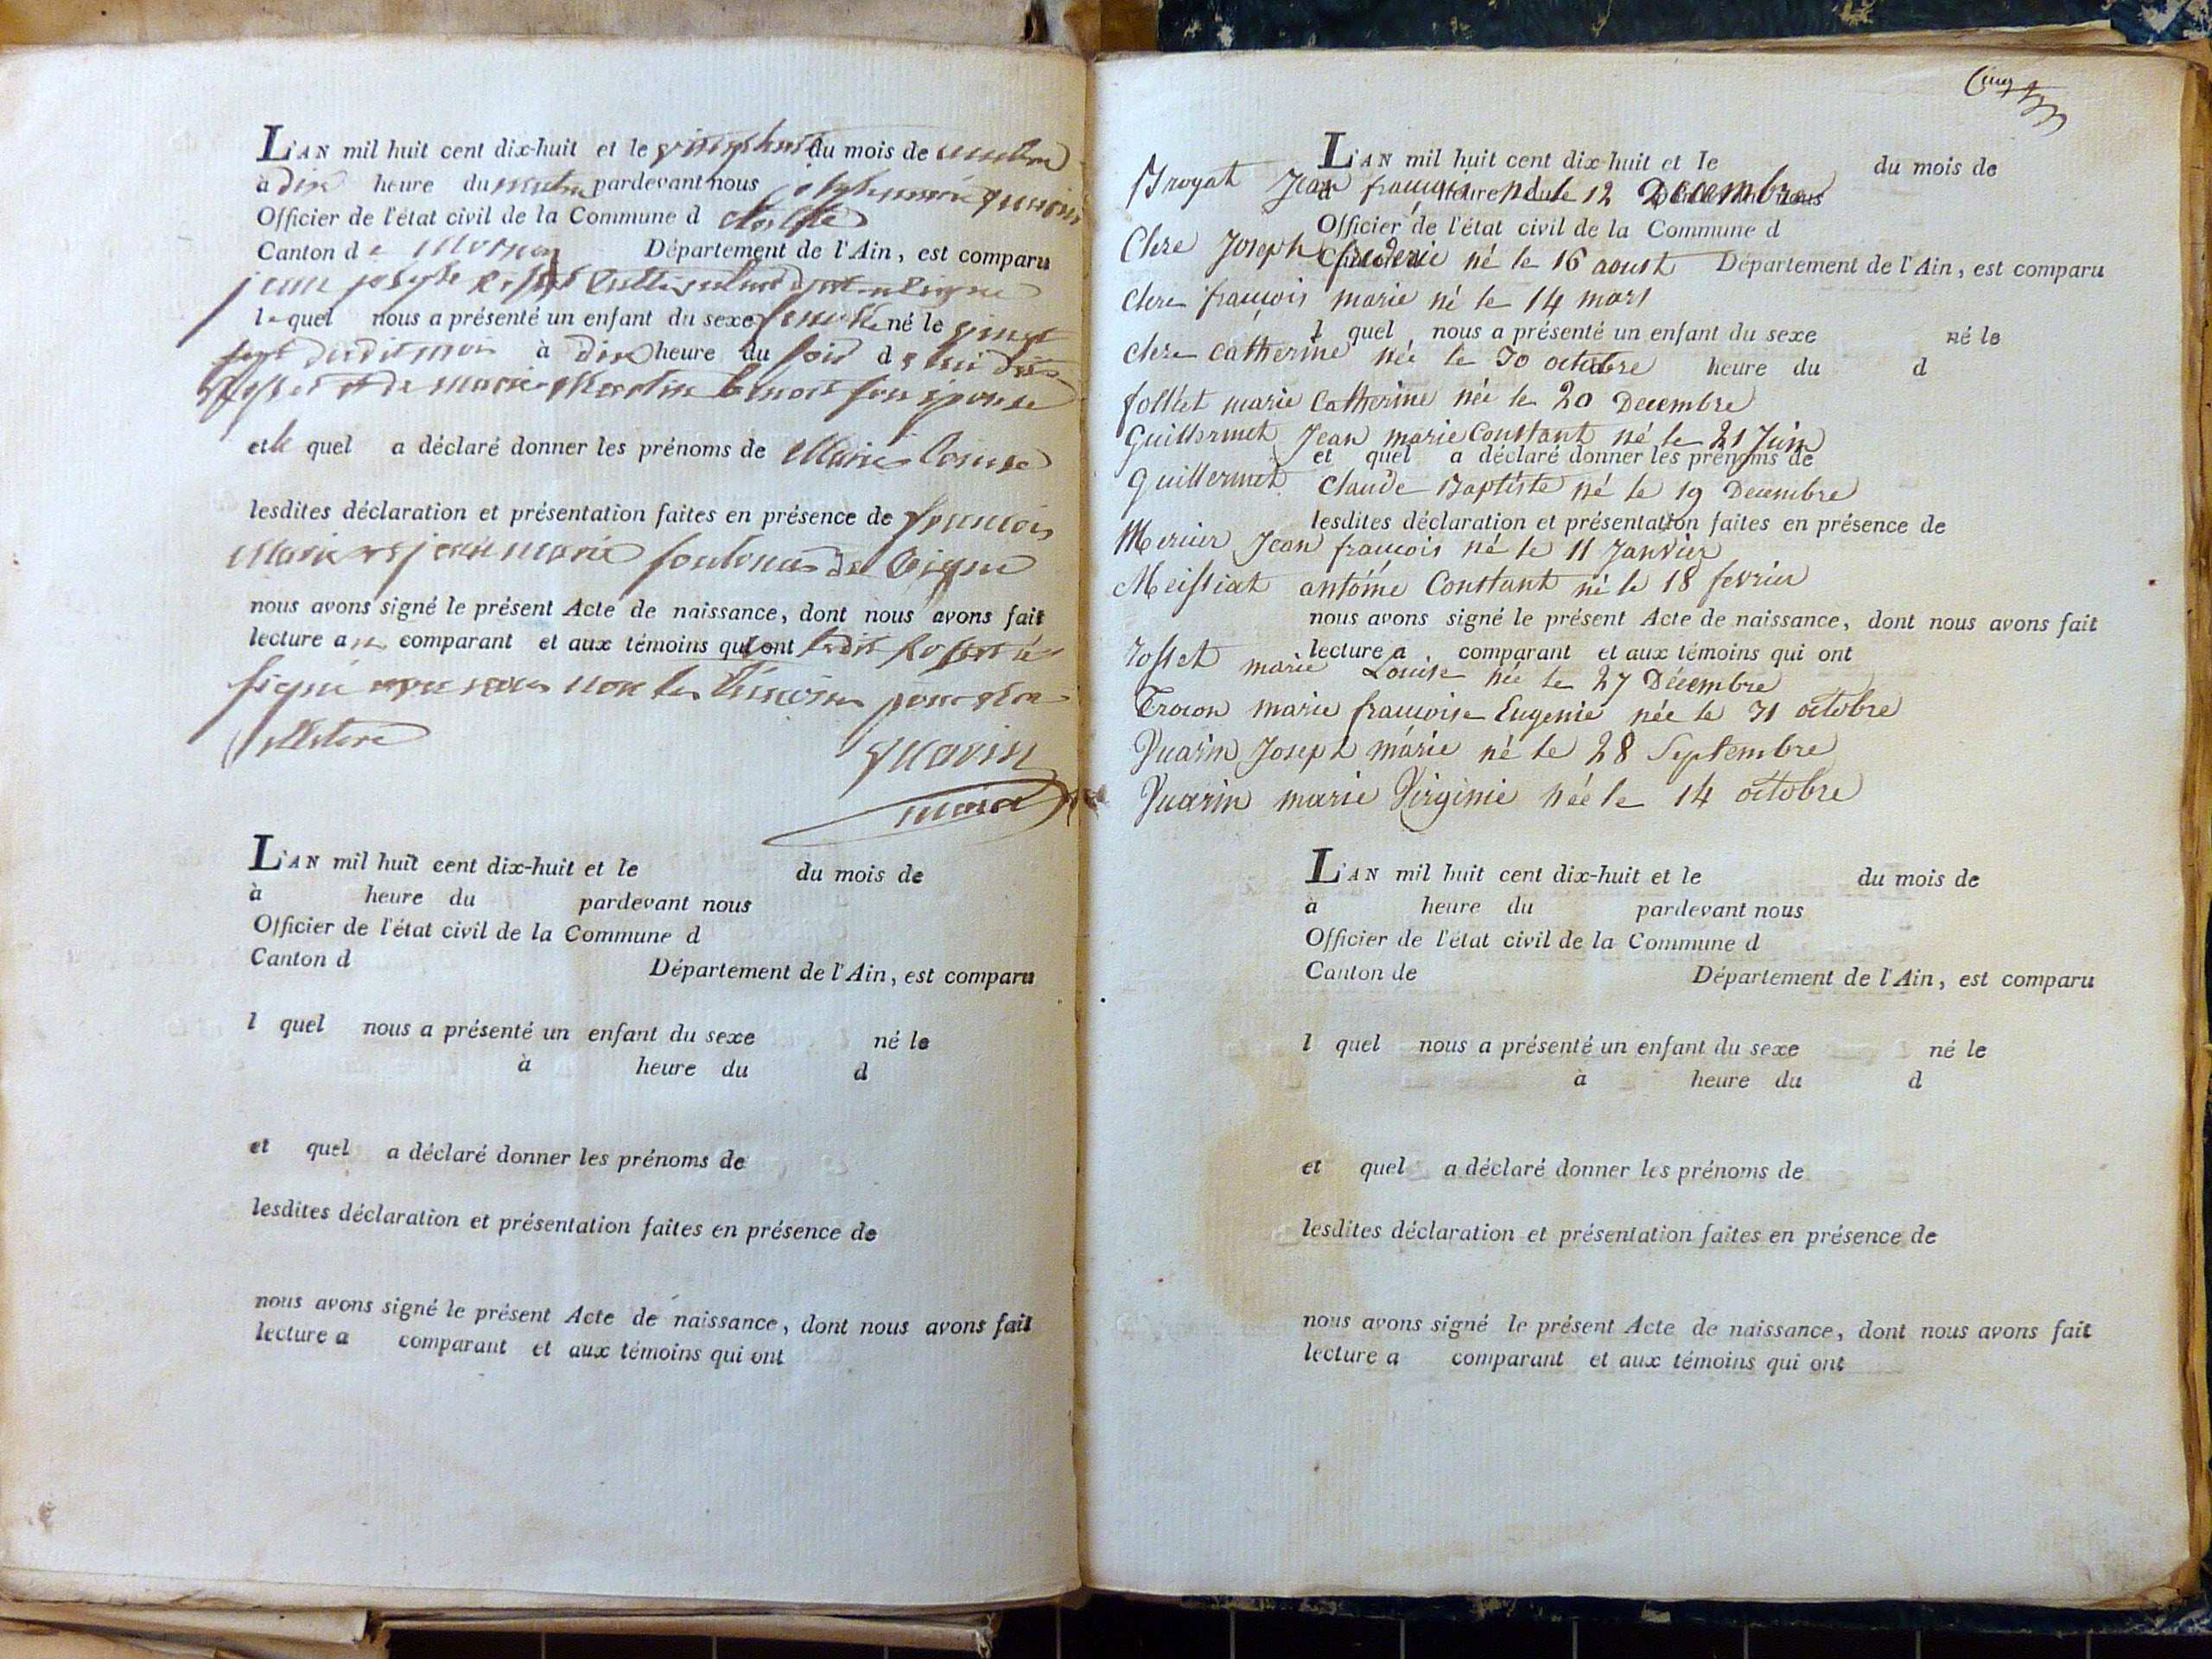 L'AN mil huit cent dix-huit et le vingt huit du mois de
à dix heure du matin pardevant nous joseph marie
Officier de l'état civil de la Commune d
Canton de Département de l'Ain, est comparu
jean joseph Rosset Cultivateur
le quel nous a présenté un enfant du sexe femelle né le vingt
sept dudit mois à dix heure du soir de lui dit
Rosset et de marie Martine benoit son épouse
et le quel a déclaré donner les prénoms de Marie Louise
lesdites déclaration et présentation faites en présence de francois
Marie et jean marie
nous avons signé le présent Acte de naissance, dont nous avons fait
lecture au comparant et aux témoins qui ont ledit Rosset à
signé avec nous non les témoins pour être
illetere
maire
L'AN mil huit cent dix-huit et le du mois de
à heure du pardevant nous
Officier de l'état civil de la Commune d
Canton d Département de l'Ain, est comparu
l quel nous a présenté un enfant du sexe né le
à heure du d
et quel a déclaré donner les prénoms de
lesdites déclaration et présentation faites en présence de
nous avons signé le présent Acte de naissance, dont nous avons fait
lecture a comparant et aux témoins qui ont
Cinq
L'AN mil huit cent dix-huit et le du mois de
Broyat Jean françois né le 12 Decembre
Officier de l'état civil de la Commune d
Clere Joseph frederic né le 16 aoust Département de l'Ain, est comparu
Clere françois marie né le 14 mars
l quel nous a présenté un enfant du sexe né le
Clere Catherine née le 30 octobre heure du d
folliet marie Catherine née le 20 Decembre
Guillermet Jean marie Constant né le 21 Juin
et quel a déclaré donner les prénoms de
Guillermet Claude Baptiste né le 19 Decembre
lesdites déclaration et présentation faites en présence de
Mercier Jean françois né le 11 Janvier
Meissiat antoine Constant né le 18 fevrier
nous avons signé le présent Acte de naissance, dont nous avons fait
lecture a comparant et aux témoins qui ont
rosset marie Louise née le 27 Décembre
Trocon marie françoise Eugenie née le 31 octobre
Vuarin Joseph marie né le 28 Septembre
Vuarin marie Virginie née le 14 octobre
L'AN mil huit cent dix-huit et le du mois de
à heure du pardevant nous
Officier de l'état civil de la Commune d
Canton de Département de l'Ain, est comparu
l quel nous a présenté un enfant du sexe né le
à heure du d
et quel a déclaré donner les prénoms de
lesdites déclaration et présentation faites en présence de
nous avons signé le présent Acte de naissance, dont nous avons fait
lecture a comparant et aux témoins qui ont